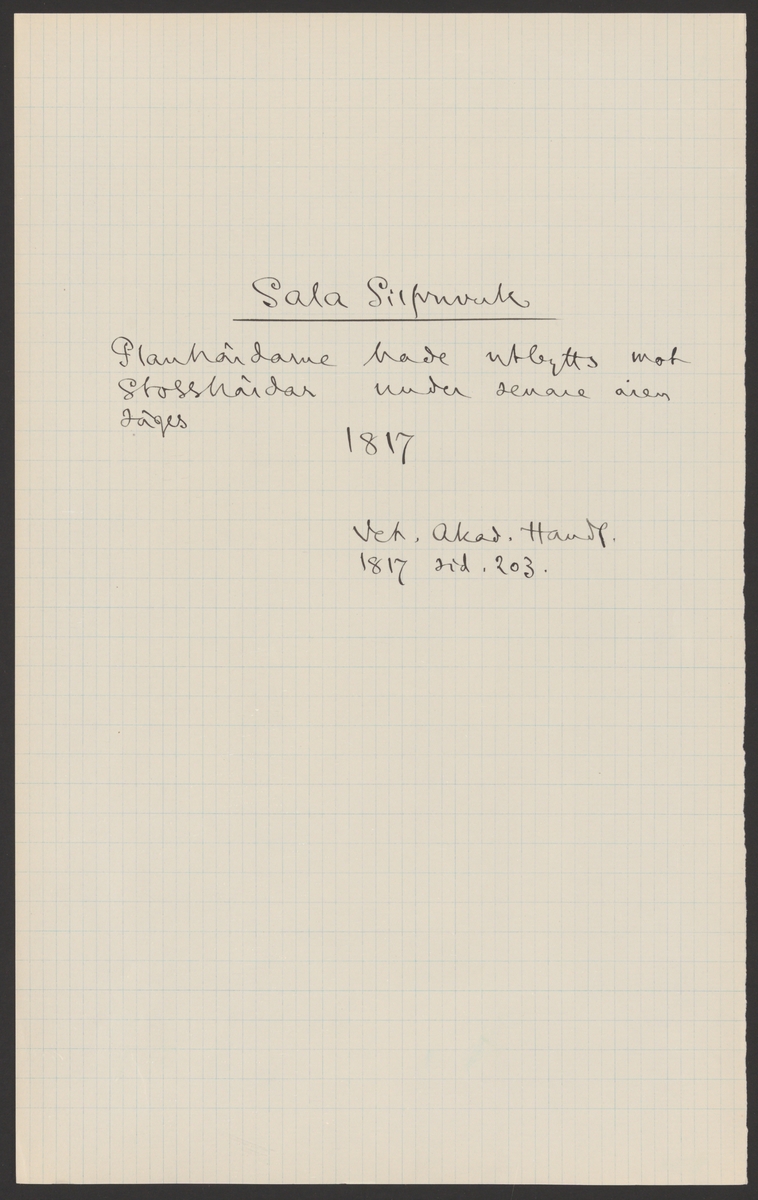 Sala Silfververk
Planhärdarne hade utbytts mot
Stosshärdar under senare åren
säges
1817
Vet. Akad. Handl.
1817 sid. 203.